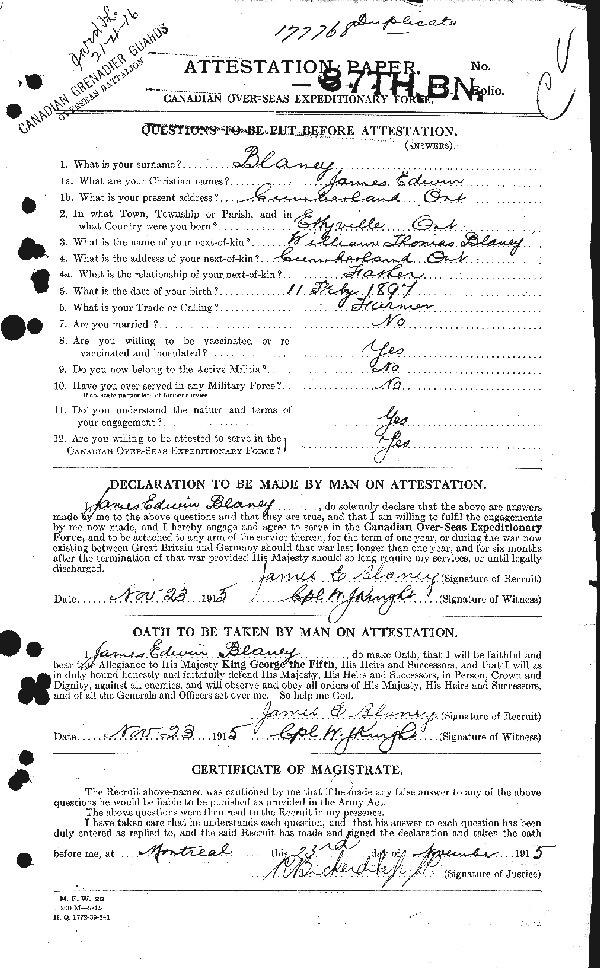 177768 Duplicate
21-4-16
CANADIAN GRENADIER GUARDS
OVERSEAS BATTALION
ATTESTATION PAPER. No.
87TH BN. Folio.
CANADIAN OVER-SEAS EXPEDITIONARY FORCE.
QUESTIONS TO BE PUT BEFORE ATTESTATION.
(ANSWERS).
1. What is your surname? Blaney
1a. What are your Christian names? James Edwin
1b. What is your present address? Cumberland Ont
2. In what Town, Township or Parish, and in
what Country were you born? Ettyville Ont
3. What is the name of your next-of-kin? William Thomas Blaney
4. What is the address of your next-of-kin? Cumberland Ont
4a. What is the relationship of your next-of-kin? Father
5. What is the date of your birth? 11 Feby 1897
6. What is your Trade or Calling? Farmer
7. Are you married? No
8. Are you willing to be vaccinated or re
vaccinated and inoculated? Yes
9. Do you now belong to the Active Militia? No
10. Have you ever served in any Military Force? No
If so, state particulars of former service
11. Do you understand the nature and terms of
your engagement? Yes
12. Are you willing to be attested to serve in the
CANADIAN OVER-SEAS EXPEDITIONARY FORCE? Yes
DECLARATION TO BE MADE BY MAN ON ATTESTATION.
I, James Edwin Blaney, do solemnly declare that the above are answers
made by me to the above questions and that they are true, and that I am willing to fulfil the engagements
by me now made, and I hereby engage and agree to serve in the Canadian Over-Seas Expeditionary
Force, and to be attached to any arm of the service therein, for the term of one year, or during the war now
existing between Great Britain and Germany should that war last longer than one year, and for six months
after the termination of that war provided His Majesty should so long require my services, or until legally
discharged.
James E Blaney (Signature of Recruit)
Date Nov 23 1915 Cpl W J Knight (Signature of Witness)
OATH TO BE TAKEN BY MAN ON ATTESTATION.
I, James Edwin Blaney, do make Oath, that I will be faithful and
bear true Allegiance to His Majesty King George the Fifth, His Heirs and Successors, and that I will as
in duty bound honestly and faithfully defend His Majesty, His Heirs and Successors, in Person, Crown and
Dignity, against all enemies, and will observe and obey all orders of His Majesty, His Heirs and Successors,
and of all the Generals and Officers set over me. So help me God.
James E Blaney (Signature of Recruit)
Date Nov 23 1915 Cpl W J Knight (Signature of Witness)
CERTIFICATE OF MAGISTRATE.
The Recruit above-named was cautioned by me that if he made any false answer to any of the above
questions he would be liable to be punished as provided in the Army Act.
The above questions were then read to the Recruit in my presence.
I have taken care that he understands each question, and that his answer to each question has been
duly entered as replied to, and the said Recruit has made and signed the declaration and taken the oath
before me, at Montreal this 23rd day of November 1915
(Signature of Justice)
M. F. W. 23
H. Q. 1772-39-1